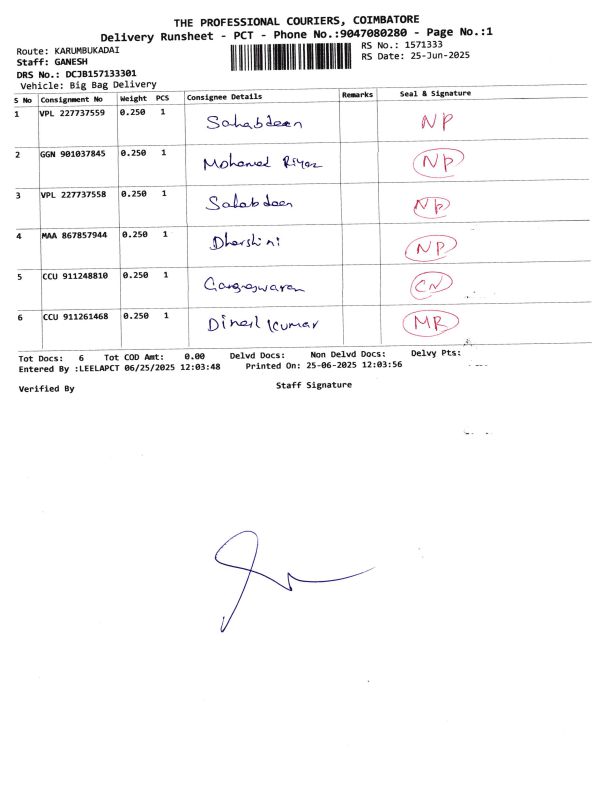 THE PROFESSIONAL COURIERS, COIMBATORE
Delivery Runsheet - PCT - Phone No.:9047080280 - Page No.:1
Route: KARUMBUKADAI RS No.: 1571333
Staff: GANESH RS Date: 25-Jun-2025
DRS No.: DCJB157133301
Vehicle: Big Bag Delivery
S No Consignment No Weight PCS Consignee Details Remarks Seal & Signature
1 VPL 227737559 0.250 1 Sahabdeen NP
2 GGN 901037845 0.250 1 Mohamed Riyaz NP
3 VPL 227737558 0.250 1 Sahabdeen NP
4 MAA 867857944 0.250 1 Dharshini NP
5 CCU 911248810 0.250 1 CN
6 CCU 911261468 0.250 1 Dinesh Kumar MR
Tot Docs: 6 Tot COD Amt: 0.00 Delvd Docs: Non Delvd Docs: Delvy Pts:
Entered By :LEELAPCT 06/25/2025 12:03:48 Printed On: 25-06-2025 12:03:56
Verified By Staff Signature